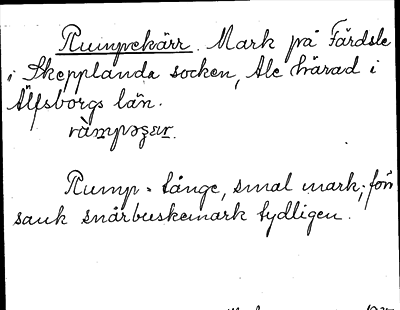 Rumpekärr. Mark på Färdsle
i Skepplanda socken, Ale härad i
Älfsborgs län.
Rump = långe, smal mark; förr
sank snårbuskemark tydligen.